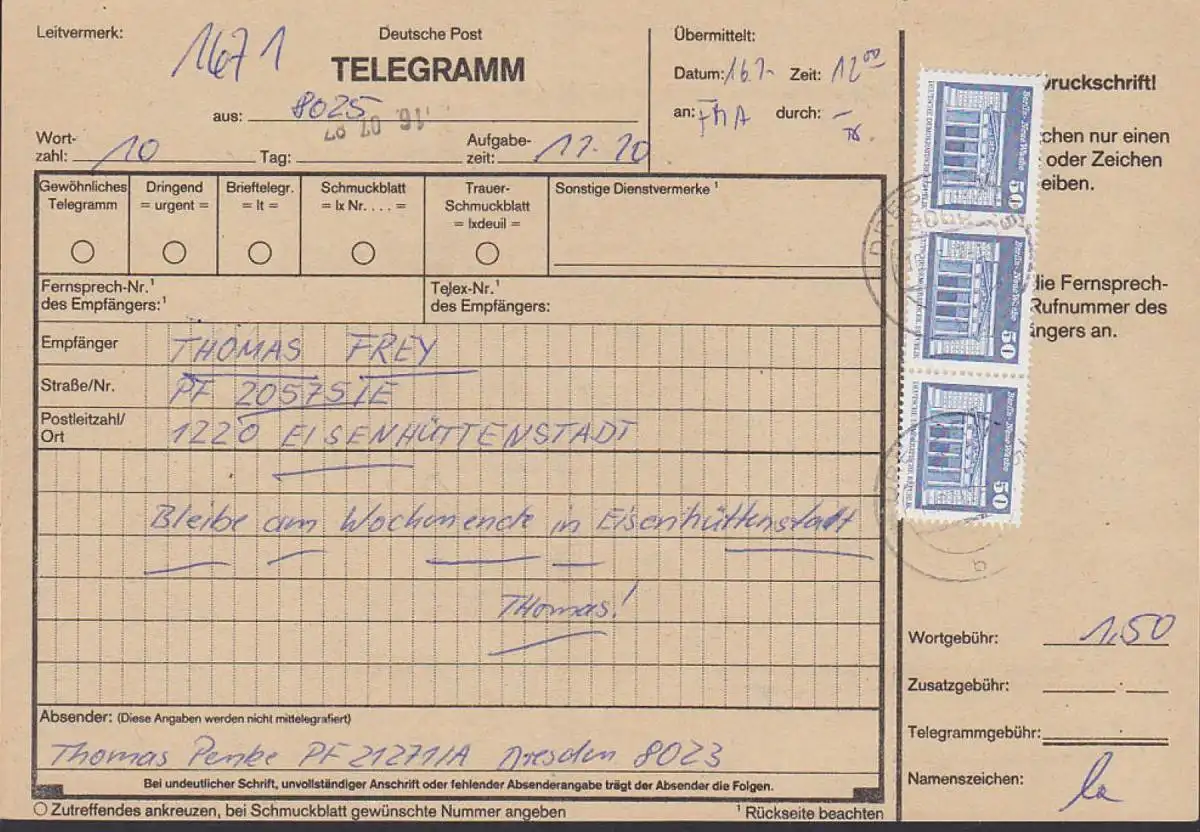 Leitvermerk:
1671
Deutsche Post
TELEGRAMM
aus: 8025
16. 07 87
Wort-
zahl: 10
Tag:
Aufgabe-
zeit: 11.20
Übermittelt:
Datum: 16.7. Zeit: 12 00
an: FMA durch:
Gewöhnliches
Telegramm
Dringend
= urgent =
Brieftelegr.
= lt =
Schmuckblatt
= lx Nr. . . . =
Trauer-
Schmuckblatt
= lxdeuil =
Sonstige Dienstvermerke ¹
Fernsprech-Nr.¹
des Empfängers:¹
Telex-Nr.¹
des Empfängers:
Empfänger THOMAS FREY
Straße/Nr. PF 20575/E
Postleitzahl/
Ort 1220 EISENHÜTTENSTADT
Bleibe am Wochenende in Eisenhüttenstadt
THomas!
Absender: (Diese Angaben werden nicht mittelegrafiert)
Thomas Penke PF 21271/A Dresden 8023
Bei undeutlicher Schrift, unvollständiger Anschrift oder fehlender Absenderangabe trägt der Absender die Folgen.
Zutreffendes ankreuzen, bei Schmuckblatt gewünschte Nummer angeben
¹ Rückseite beachten
ruckschrift!
chen nur einen
oder Zeichen
eiben.
die Fernsprech-
Rufnummer des
ängers an.
Berlin-Neue Wache
DEUTSCHE DEMOKRATISCHE REPUBLIK
50
Berlin-Neue Wache
DEUTSCHE DEMOKRATISCHE REPUBLIK
50
Berlin-Neue Wache
DEUTSCHE DEMOKRATISCHE REPUBLIK
50
Wortgebühr: 1,50
Zusatzgebühr:
Telegrammgebühr:
Namenszeichen: